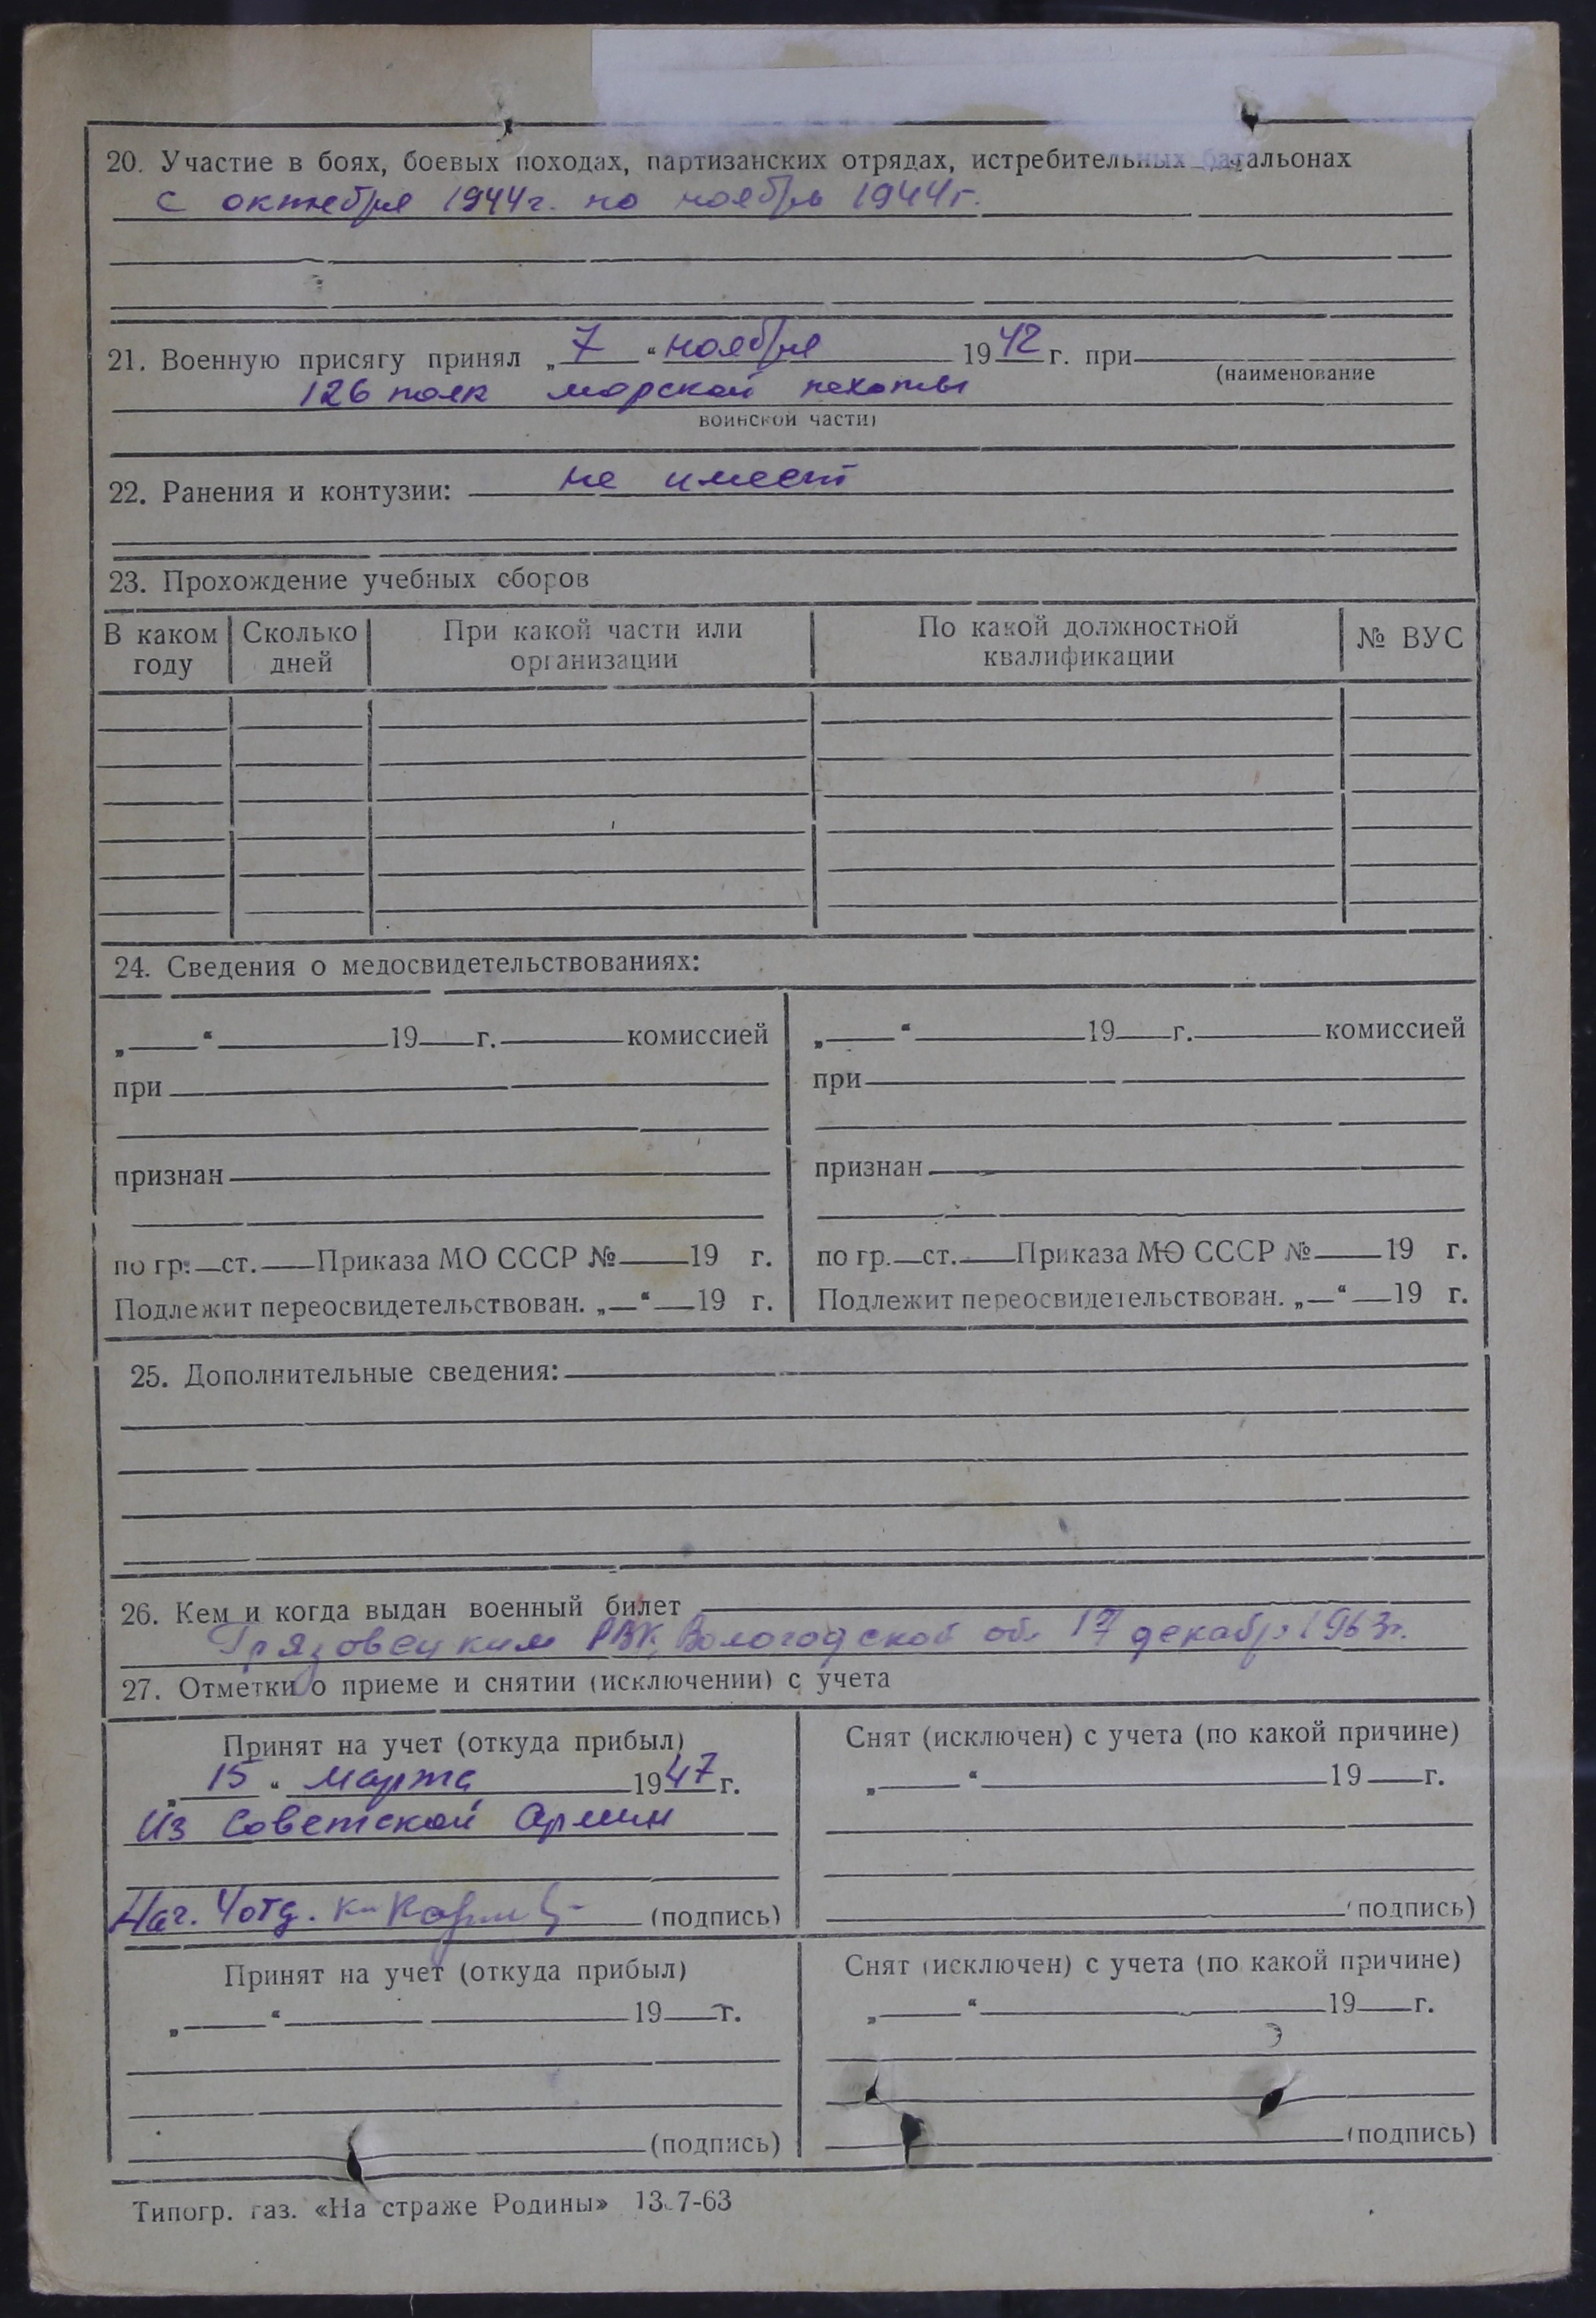 20. Участие в боях, боевых походах, партизанских отрядах, истребительных батальонах
с октября 1944г. по ноябрь 1944г.
21. Военную присягу принял „ 7 “ ноября 1942 г. при
(наименование
126 полк морской пехоты
воинской части)
22. Ранения и контузии: не имеет
23. Прохождение учебных сборов
В каком году Сколько дней При какой части или организации По какой должностной квалификации № ВУС
24. Сведения о медосвидетельствованиях:
„ “ 19 г. комиссией
при
признан
по гр. ст. Приказа МО СССР № 19 г.
Подлежит переосвидетельствован. „ “ 19 г.
„ “ 19 г. комиссией
при
признан
по гр. ст. Приказа МО СССР № 19 г.
Подлежит переосвидетельствован. „ “ 19 г.
25. Дополнительные сведения:
26. Кем и когда выдан военный билет
Грязовецким РВК, Вологодской об. 17 декабря 1963г.
27. Отметки о приеме и снятии (исключении) с учета
Принят на учет (откуда прибыл)
„ 15 “ марта 1947 г.
Из Советской Армии
Нач. 4 отд. к-н (подпись)
Снят (исключен) с учета (по какой причине)
„ “ 19 г.
(подпись)
Принят на учет (откуда прибыл)
„ “ 19 г.
(подпись)
Снят (исключен) с учета (по какой причине)
„ “ 19 г.
(подпись)
Типогр. газ. «На страже Родины» 13-7-63